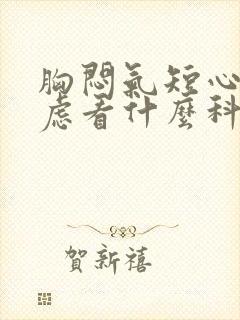 胸悶氣短心
慮看什麼科
賀新禧